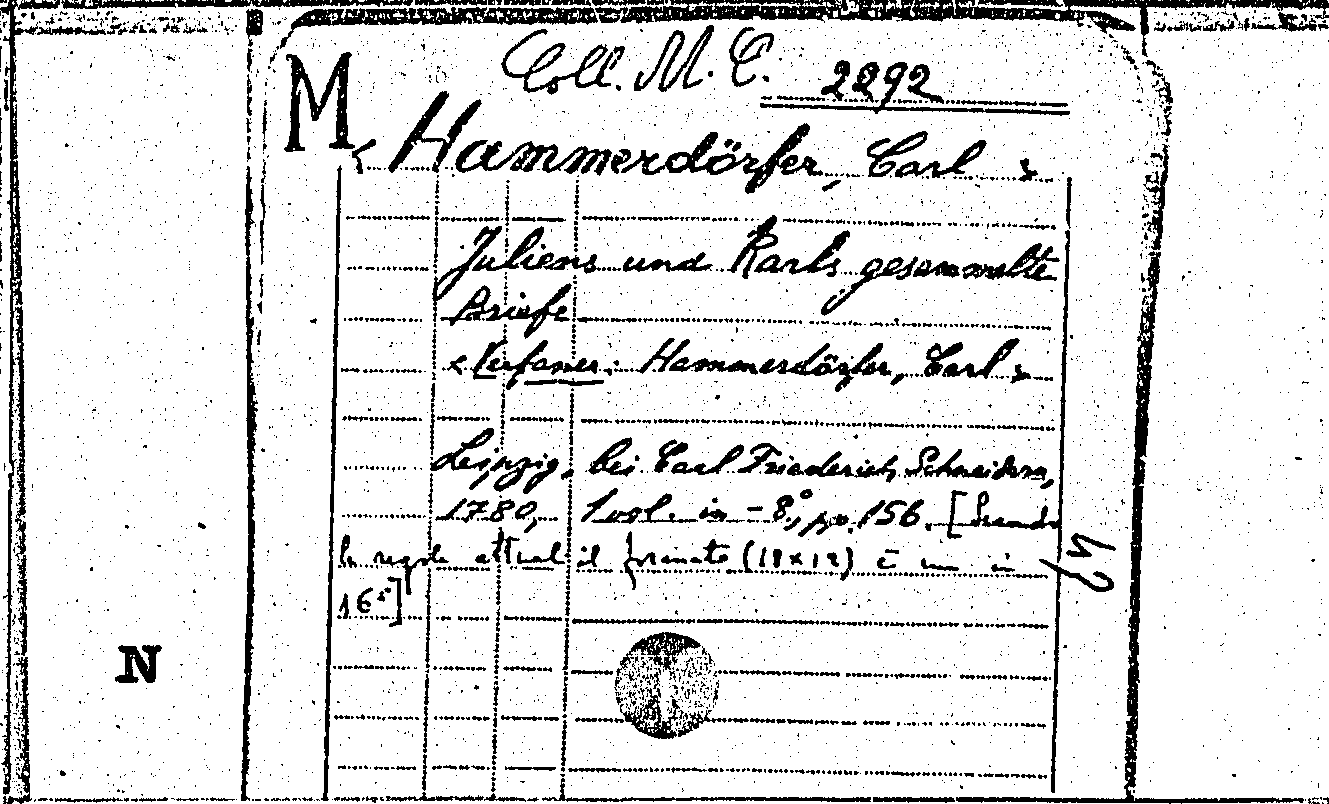 Coll. M. C. 2292
M
< Hammerdörfer, Carl >
Juliens und Karls gesammelte
Briefe
< Verfasser: Hammerdörfer, Carl >
Leipzig, bei Carl Friederich Schneidern,
1780, 1 vol. in-8°, pp. 156. [Secondo
le regole attuali il formato (18x12) è un in
16°]
N